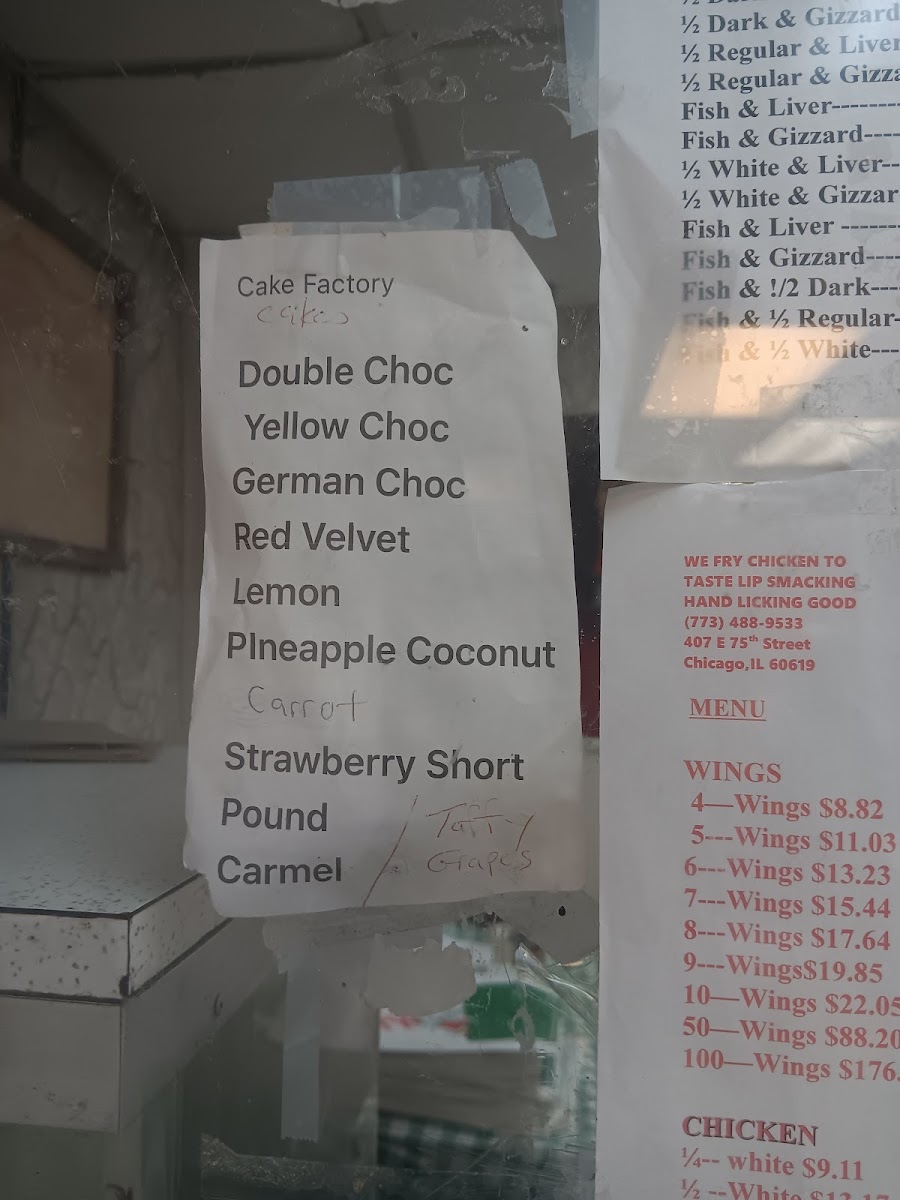 Cake Factory
cakes
Double Choc
Yellow Choc
German Choc
Red Velvet
Lemon
PIneapple Coconut
Carrot
Strawberry Short
Pound
Carmel
Taffy
Grapes
½ Dark & Gizzard
½ Regular & Liver
½ Regular & Gizza
Fish & Liver--------
Fish & Gizzard----
½ White & Liver--
½ White & Gizzar
Fish & Liver -------
Fish & Gizzard----
Fish & !/2 Dark---
Fish & ½ Regular-
Fish & ½ White---
WE FRY CHICKEN TO
TASTE LIP SMACKING
HAND LICKING GOOD
(773) 488-9533
407 E 75th Street
Chicago,IL 60619
MENU
WINGS
4—Wings $8.82
5---Wings $11.03
6---Wings $13.23
7---Wings $15.44
8---Wings $17.64
9---Wings$19.85
10—Wings $22.05
50—Wings $88.20
100—Wings $176.
CHICKEN
¼-- white $9.11
½ --White